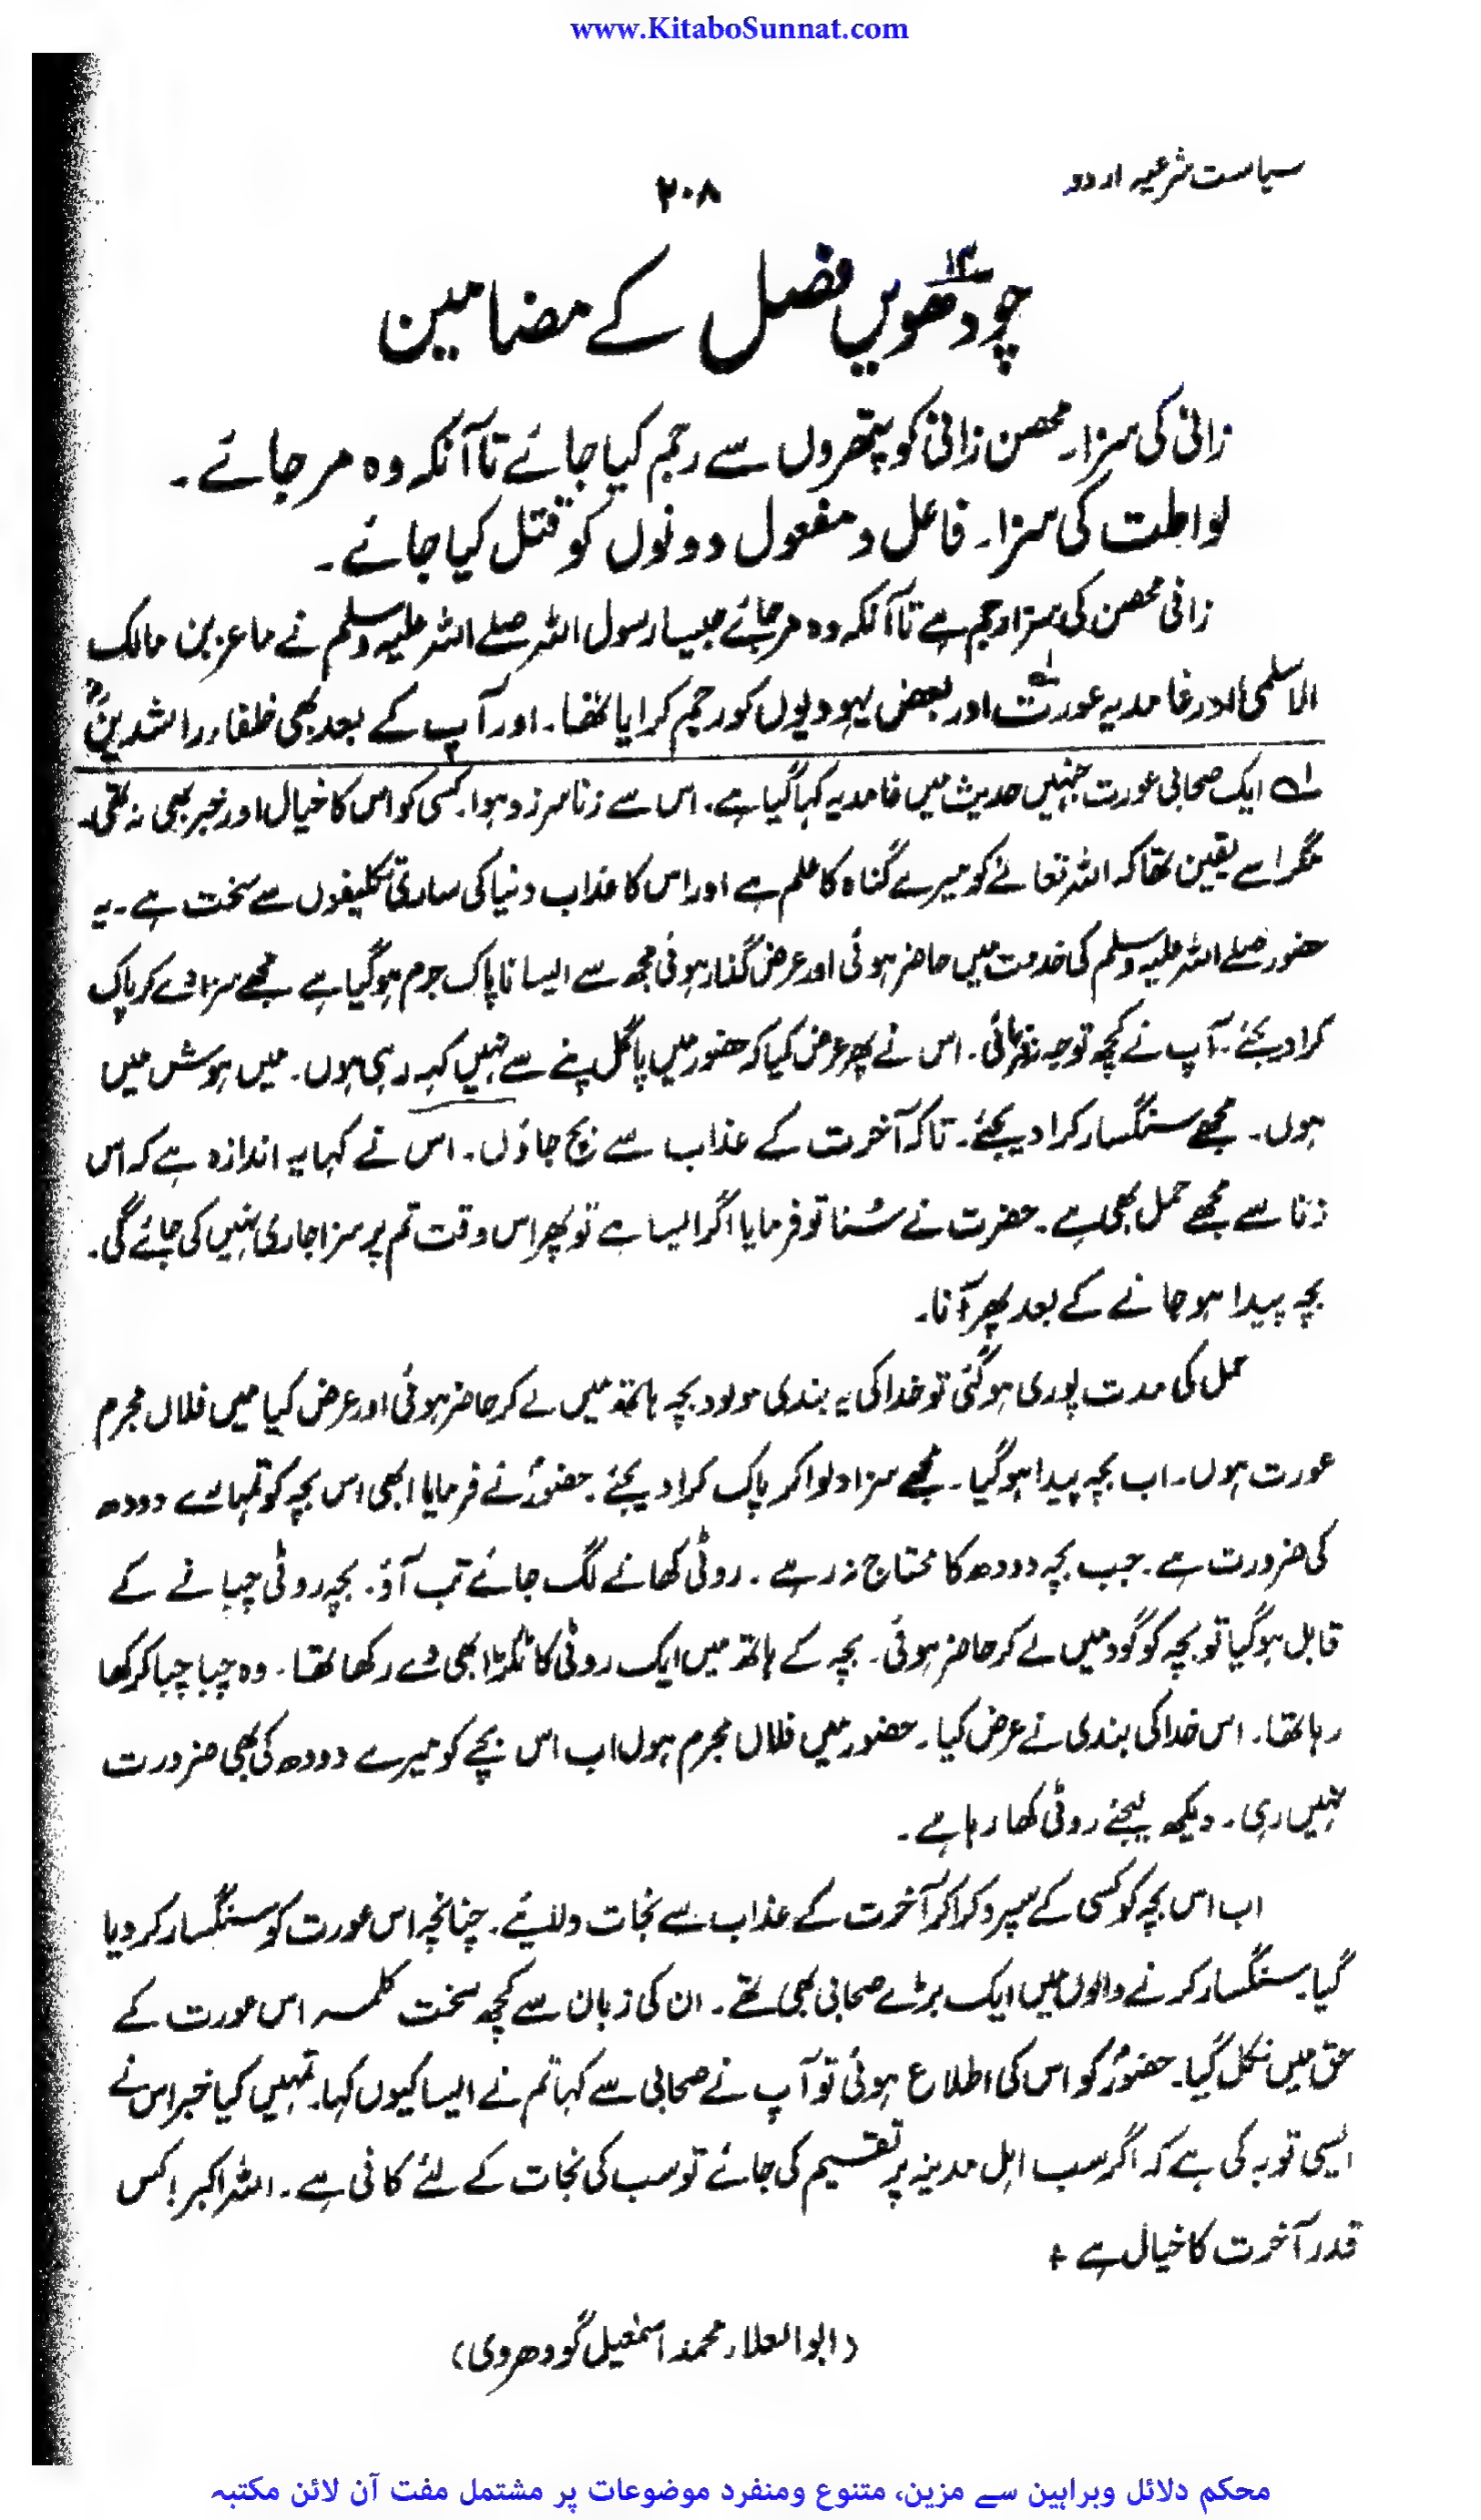 www.KitaboSunnat.com
سیاست شرعیہ اردو
۲۰۸
چودھویں۱۴ فصل کے مضامین
زانی کی سزا۔ محصن زانی کو پتھروں سے رجم کیا جائے تا آنکہ وہ مر جائے۔
لواطت کی سزا۔ فاعل و مفعول دونوں کو قتل کیا جائے۔
زانی محصن کی سزا رجم ہے تا آنکہ وہ مر جائے جیسا رسول اللہ صلے اللہ علیہ وسلم نے ماعز بن مالک
الاسلمی اور غامدیہ عورت ؎۱ اور بعض یہودیوں کو رجم کرایا تھا۔ اور آپ کے بعد بھی خلفاء راشدینؓ
؎۱ ایک صحابی عورت جنہیں حدیث میں غامدیہ کہا گیا ہے۔ اس سے زنا سرزد ہوا۔ کسی کو اس کا خیال اور خبر بھی نہ تھی۔
مگر اسے یقین تھا کہ اللہ تعالےٰ کو میرے گناہ کا علم ہے اور اس کا عذاب دنیا کی ساری تکلیفوں سے سخت ہے۔ یہ
حضور صلے اللہ علیہ وسلم کی خدمت میں حاضر ہوئی اور عرض گذار ہوئی مجھ سے ایسا ناپاک جرم ہو گیا ہے مجھے سزا دے کر پاک
کرا دیجئے۔ آپ نے کچھ توجہ نہ فرمائی۔ اس نے پھر عرض کیا کہ حضور میں پاگل پنے سے نہیں کہہ رہی ہوں۔ میں ہوش میں
ہوں۔ مجھے سنگسار کرا دیجئے۔ تاکہ آخرت کے عذاب سے بچ جاؤں۔ اس نے کہا یہ اندازہ ہے کہ اس
زنا سے مجھے حمل بھی ہے۔ حضرت نے سُنا تو فرمایا اگر ایسا ہے تو پھر اس وقت تم پر سزا جاری نہیں کی جائے گی۔
بچہ پیدا ہو جانے کے بعد پھر آنا۔
حمل کی مدت پوری ہو گئی تو خدا کی یہ بندی مولود بچہ ہاتھ میں لے کر حاضر ہوئی اور عرض کیا میں فلاں مجرم
عورت ہوں۔ اب بچہ پیدا ہو گیا۔ مجھے سزا دلوا کر پاک کرا دیجئے۔ حضورؐ نے فرمایا ابھی اس بچہ کو تمہارے دودھ
کی ضرورت ہے۔ جب بچہ دودھ کا محتاج نہ رہے۔ روٹی کھانے لگ جائے تب آؤ۔ بچہ روٹی چبانے کے
قابل ہو گیا تو بچہ کو گود میں لے کر حاضر ہوئی۔ بچہ کے ہاتھ میں ایک روٹی کا ٹکڑا بھی دے رکھا تھا۔ وہ چبا چبا کر کھا
رہا تھا۔ اس خدا کی بندی نے عرض کیا۔ حضور میں فلاں مجرم ہوں اب اس بچے کو میرے دودھ کی بھی ضرورت
نہیں رہی۔ دیکھ لیجئے روٹی کھا رہا ہے۔
اب اس بچہ کو کسی کے سپرد کرا کر آخرت کے عذاب سے نجات دلائیے۔ چنانچہ اس عورت کو سنگسار کر دیا
گیا۔ سنگسار کرنے والوں میں ایک بڑے صحابی بھی تھے۔ ان کی زبان سے کچھ سخت کلمہ اس عورت کے
حق میں نکل گیا۔ حضورؐ کو اس کی اطلاع ہوئی تو آپ نے صحابی سے کہا تم نے ایسا کیوں کہا۔ تمہیں کیا خبر اس نے
ایسی توبہ کی ہے کہ اگر سب اہل مدینہ پر تقسیم کی جائے تو سب کی نجات کے لئے کافی ہے۔ اللہ اکبر! کس
قدر آخرت کا خیال ہے +
(ابو العلاء محمد اسمٰعیل گودھروی)
محکم دلائل وبراہین سے مزین، متنوع ومنفرد موضوعات پر مشتمل مفت آن لائن مکتبہ